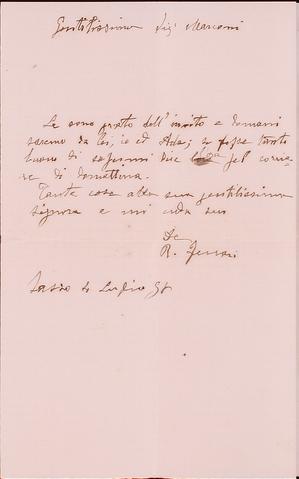 Gentilissimo Sig. Marconi
Le sono grato dell'invito e domani
saremo da lei, io ed Ada; se fosse tanto
buono di sapermi dire l'ora pel corrie-
re di domattina.
Tante cose alla sua gentilissima
signora e mi creda suo
R. Ferrari
Sasso 4 Luglio